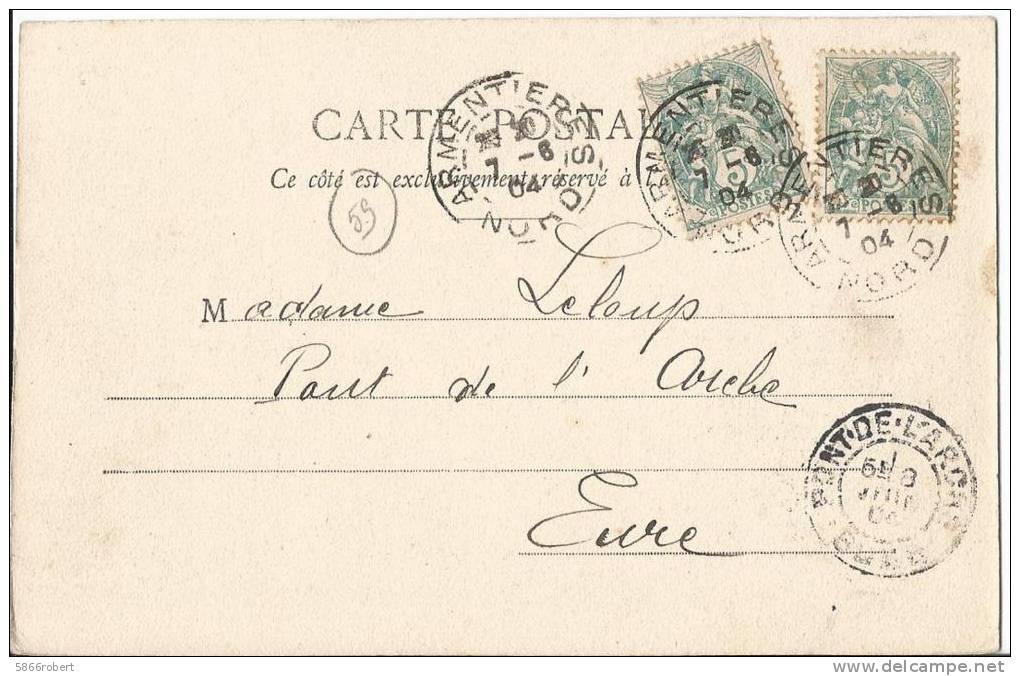 CARTE POSTALE
Ce côté est exclusivement réservé à l'
59
ARMENTIERES
7 -6
04
NORD
ARMENTIERES
7 -6
04
NORD
5
POSTES
ARMENTIERES
7 -6
04
NORD
5
POSTES
Madame Leloup
Pont de l'Arche
Eure
PONT·DE·L'ARCHE
8
JUIN
04
EURE
5866robert
delcampe.net